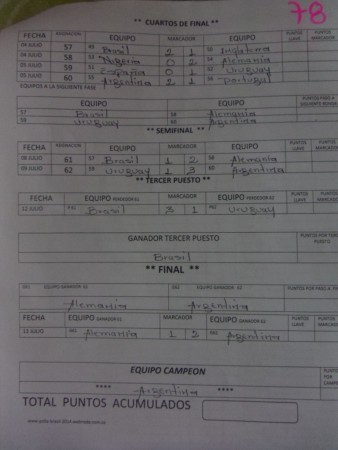 78
** CUARTOS DE FINAL **
FECHA EQUIPO MARCADOR EQUIPO PUNTOS LLAVE PUNTOS MARCADOR
04 JULIO 57 49 Brasil 2 1 50 Inglaterra
04 JULIO 58 53 0 2 54 Alemania
05 JULIO 59 51 España 0 1 52 Uruguay
05 JULIO 60 55 Argentina 2 1 56 Portugal
EQUIPOS A LA SIGUIENTE FASE
EQUIPO EQUIPO PUNTOS PASO A SIGUIENTE RONDA
57 Brasil 58 Alemania
59 Uruguay 60 Argentina
** SEMIFINAL **
FECHA EQUIPO MARCADOR EQUIPO PUNTOS LLAVE PUNTOS MARCADOR
08 JULIO 61 57 Brasil 1 2 58 Alemania
09 JULIO 62 59 Uruguay 1 3 60 Argentina
** TERCER PUESTO **
FECHA EQUIPO PERDEDOR 61 MARCADOR EQUIPO PERDEDOR 62 PUNTOS LLAVE PUNTOS MARCADOR
12 JULIO P.61 Brasil 3 1 Uruguay
GANADOR TERCER PUESTO PUNTOS POR TERCER PUESTO
Brasil
** FINAL **
G61 EQUIPO GANADOR 61 G62 EQUIPO GANADOR 62 PUNTOS POR PASO A
Alemania Argentina
FECHA EQUIPO GANADOR 61 MARCADOR EQUIPO GANADOR 62 PUNTOS LLAVE PUNTOS MARCADOR
13 JULIO G61 Alemania 1 2 G62 Argentina
EQUIPO CAMPEON PUNTOS POR
**** Argentina ****
TOTAL PUNTOS ACUMULADOS